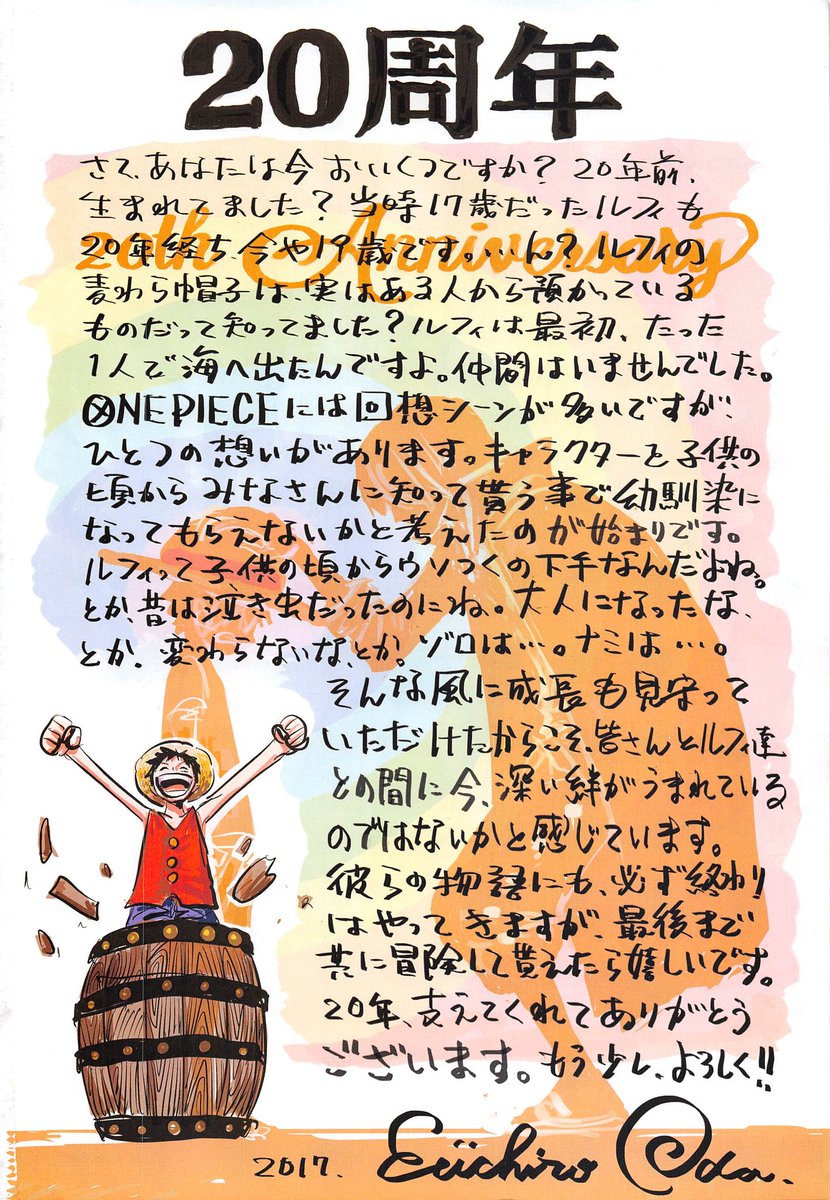 20周年
20th Anniversary
さて、あなたは今おいくつですか？ 20年前、
生まれてました？当時17歳だったルフィも
20年経ち、今や19歳です。…ん？ルフィの
麦わら帽子は、実はある人から預かっている
ものだって知ってました？ルフィは最初、たった
1人で海へ出たんですよ。仲間はいませんでした。
ONE PIECEには回想シーンが多いですが、
ひとつの想いがあります。キャラクターを子供の
頃からみなさんに知って貰う事で幼馴染に
なってもらえないかと考えたのが始まりです。
ルフィって子供の頃からウソつくの下手なんだよね。
とか、昔は泣き虫だったのにね。大人になったな、
とか、変わらないな、とか。ゾロは…。ナミは…。
そんな風に成長も見守って
いただけたからこそ、皆さんとルフィ達
との間に今、深い絆がうまれている
のではないかと感じています。
彼らの物語にも、必ず終わり
はやってきますが、最後まで
共に冒険して貰えたら嬉しいです。
20年、支えてくれてありがとう
ございます。もう少し、よろしく!!
2017. Eiichiro Oda.